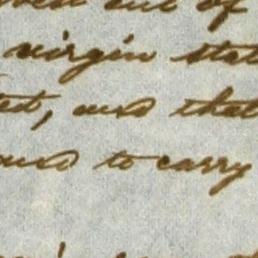 out of
virgin stat
ted, and that
and to carry